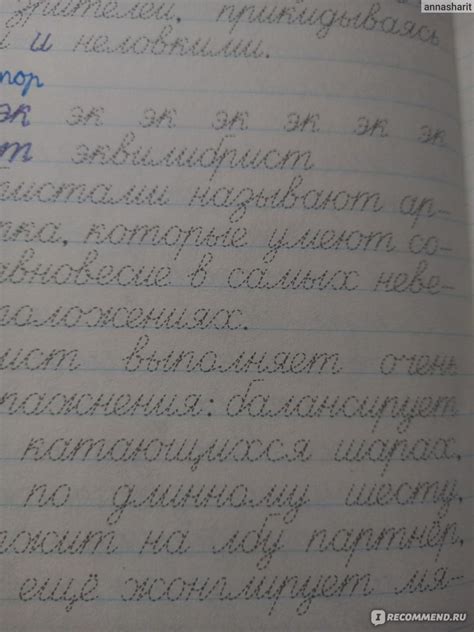 annasharit
зрителей, прикидываясь
и неловкими.
тор
эк эк эк эк эк эк эк
т эквилибрист
бристами называют ар-
рка, которые умеют со-
авновесие в самых неве-
положениях.
ист выполняет очень
пажнения: балансирует
катающихся шарах,
по длинному шесту,
жит на лбу партнёр,
ещё жонглирует мя-
IRECOMMEND.RU